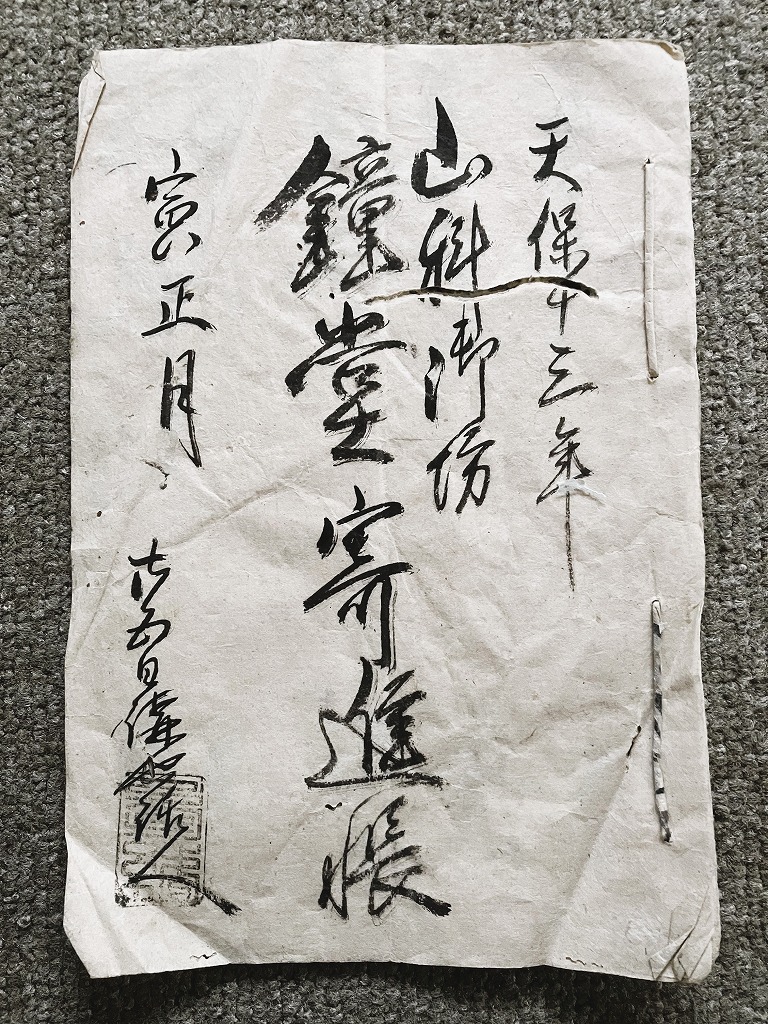 天保十三年
山科御坊
鐘堂寄進帳
寅正月
廿五日講